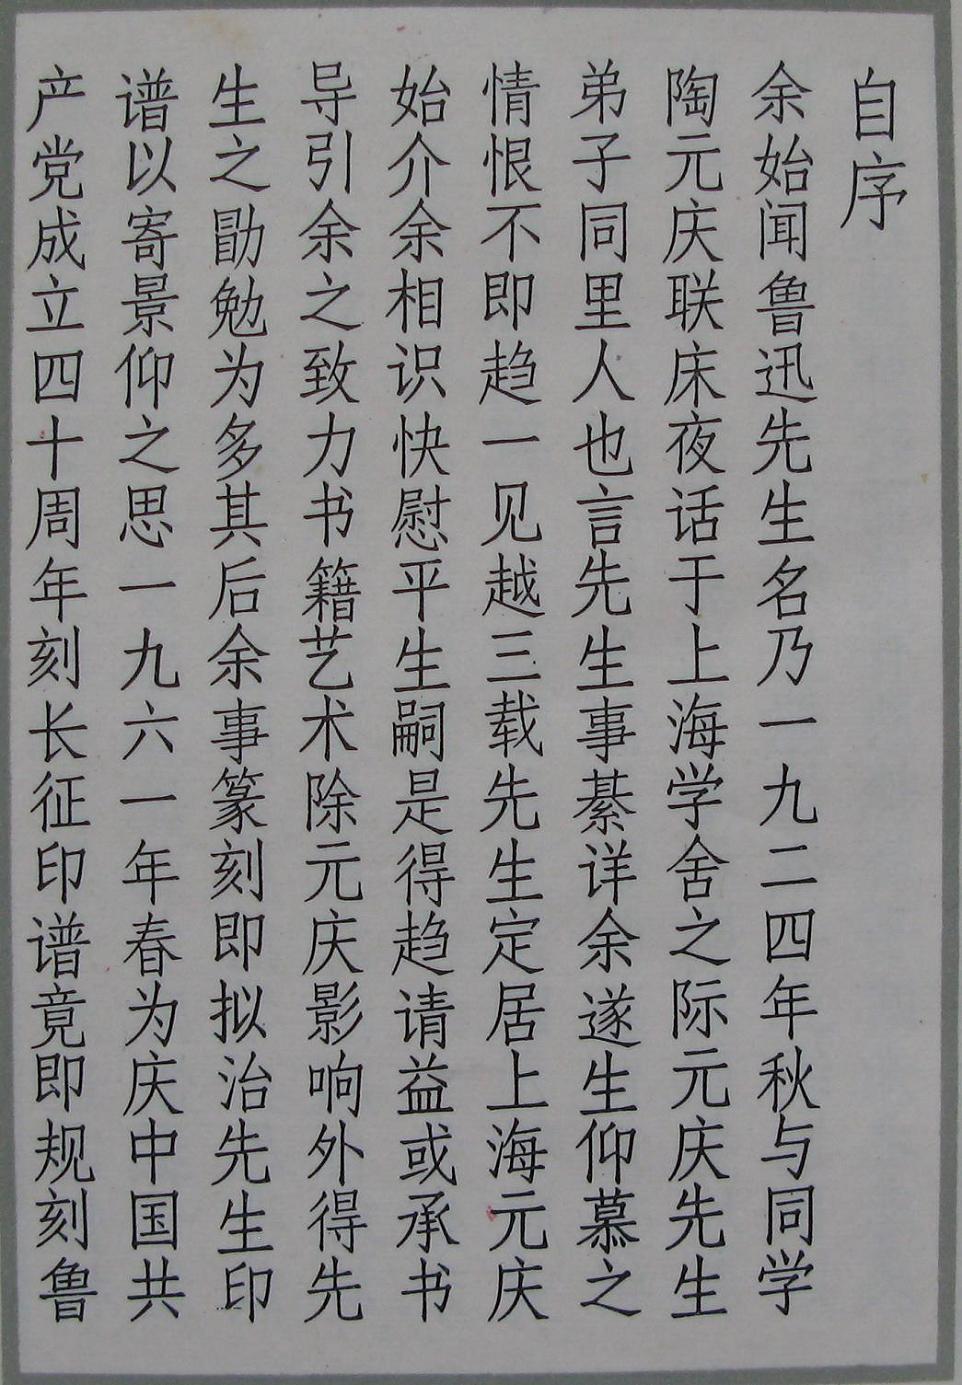 自序
余始闻鲁迅先生名乃一九二四年秋与同学
陶元庆联床夜话于上海学舍之际元庆先生
弟子同里人也言先生事綦详余遂生仰慕之
情恨不即趋一见越三载先生定居上海元庆
始介余相识快慰平生嗣是得趋请益或承书
导引余之致力书籍艺术除元庆影响外得先
生之勖勉为多其后余事篆刻即拟治先生印
谱以寄景仰之思一九六一年春为庆中国共
产党成立四十周年刻长征印谱竟即规刻鲁